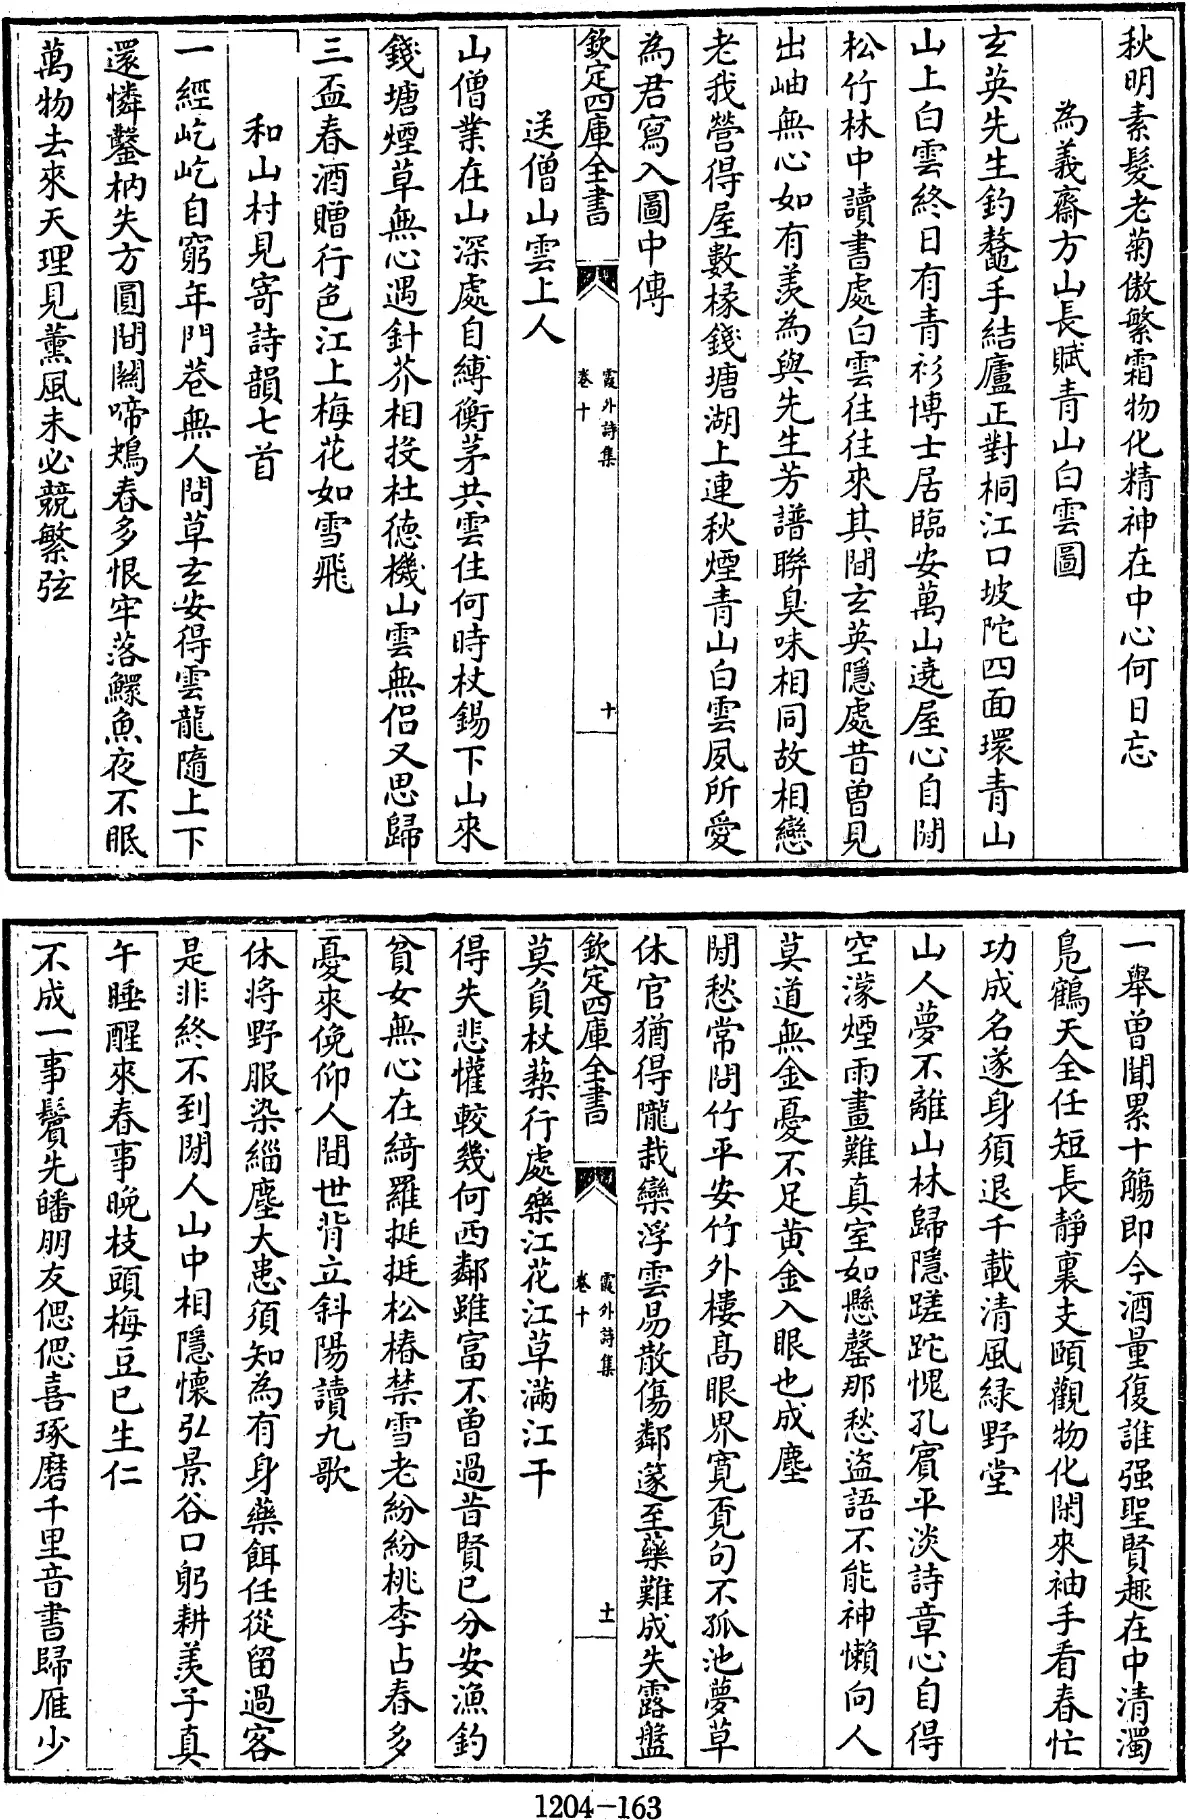 秋明素髮老菊傲繁霜物化精神在中心何日忘
為義齋方山長賦青山白雲圖
玄英先生釣鼇手結廬正對桐江口坡陀四面環青山
山上白雲終日有青衫博士居臨安萬山遶屋心自閒
松竹林中讀書處白雲往往來其間玄英隱處昔曾見
出岫無心如有羡為與先生芳譜聯臭味相同故相戀
老我營得屋數椽錢塘湖上連秋煙青山白雲夙所愛
為君寫入圖中傳
欽定四庫全書
霞外詩集
卷十
十
送僧山雲上人
山僧業在山深處自縛衡茅共雲住何時杖錫下山來
錢塘煙草無心遇針芥相投杜德機山雲無侣又思歸
三盃春酒贈行色江上梅花如雪飛
和山村見寄詩韻七首
一經屹屹自窮年門巷無人問草玄安得雲龍隨上下
還憐鑿枘失方圓間關啼鴂春多恨牢落鰥魚夜不眠
萬物去來天理見薰風未必競繁弦
一舉曾聞累十觴即今酒量復誰强聖賢趣在中清濁
鳬鶴天全任短長靜裏支頤觀物化閑來袖手看春忙
功成名遂身須退千載清風緑野堂
山人夢不離山林歸隱蹉跎愧孔賓平淡詩章心自得
空濛煙雨畫難真室如懸罄那愁盜語不能神懶向人
莫道無金憂不足黄金入眼也成塵
閒愁常問竹平安竹外樓髙眼界寛覓句不孤池夢草
休官猶得隴栽欒浮雲易散傷鄰篴至藥難成失露盤
欽定四庫全書
霞外詩集
卷十
土
莫負杖藜行處樂江花江草滿江干
得失悲懽較幾何西鄰雖富不曾過昔賢已分安漁釣
貧女無心在綺羅挺挺松椿禁雪老紛紛桃李占春多
憂來俛仰人間世背立斜陽讀九歌
休将野服染緇塵大患須知為有身藥餌任從留過客
是非終不到閒人山中相隱懷弘景谷口躬耕羨子真
午睡醒來春事晩枝頭梅豆已生仁
不成一事鬢先皤朋友偲偲喜琢磨千里音書歸雁少
1204-163